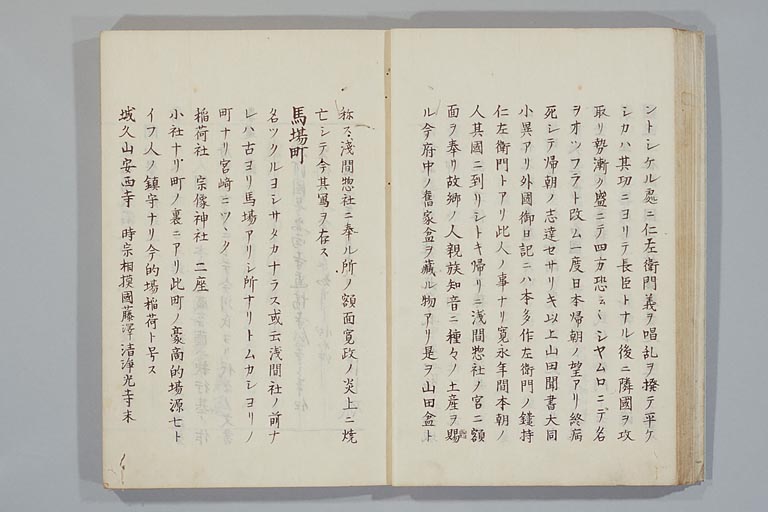 ントシケル処ニ仁左衛門義ヲ唱乱ヲ撥テ平ケ
シカハ其功ニヨリテ長臣トナル後ニ隣國ヲ攻
取リ勢漸ク盛ニテ四方恐ミシヤムロニテ名
ヲオツフラト改ム一度日本帰朝ノ望アリ終病
死シテ帰朝ノ志達セサリキ以上山田聞書大同
小異アリ外國御日記ニハ本多作左衛門ノ鑓持
仁左衛門トアリ此人ノ事ナリ寛永年間本朝ノ
人其國ニ到リシトキ帰リニ浅間惣社ノ宮ニ額
面ヲ奉リ故郷ノ人親族知音ニ種々ノ土産ヲ賜
ル今府中ノ舊家盆ヲ藏ル物アリ是ヲ山田盆ト
称ス浅間惣社ニ奉ル所ノ額面寛政ノ炎上ニ焼
亡シテ今其寫ヲ存ス
馬場町
名ツクルヨシサタカナラス或云浅間社ノ前ナ
レハ古ヨリ馬場アリシ所ナリトムカシヨリノ
町ナリ宮崎ニツヽク
稲荷社 宗像神社 二座
小社ナリ町ノ裏ニアリ此町ノ豪商的場源七ト
イフ人ノ鎮守ナリ今的場稲荷ト号ス
城久山安西寺 時宗相摸國藤澤清浄光寺末